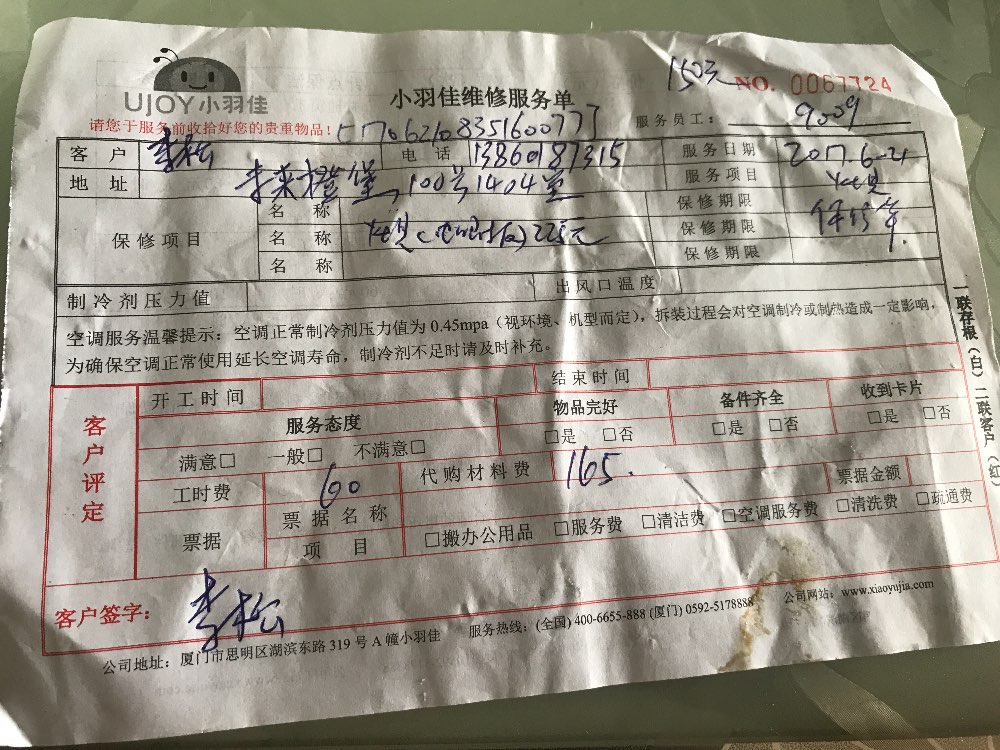 UJOY小羽佳
小羽佳维修服务单
150元 NO. 0067724
请您于服务前收拾好您的贵重物品!
服务员工: 9009
客户 李松 电话 13860187315 服务日期 2017.6-21
地址 100号1404室 服务项目
保修项目
名称 保修期限
名称 225元 保修期限
名称 保修期限
制冷剂压力值 出风口温度
空调服务温馨提示:空调正常制冷剂压力值为 0.45mpa(视环境、机型而定),拆装过程会对空调制冷或制热造成一定影响,
为确保空调正常使用延长空调寿命,制冷剂不足时请及时补充。
一联存根(白)二联客户(红)
客户评定
开工时间 结束时间
服务态度 物品完好 备件齐全 收到卡片
满意□ 一般□ 不满意□ □是 □否 □是 □否 □是 □否
工时费 60 代购材料费 165. 票据金额
票据 票据名称
项目 □搬办公用品 □服务费 □清洁费 □空调服务费 □清洗费 □疏通费
客户签字: 李松
公司地址:厦门市思明区湖滨东路 319 号 A 幢小羽佳 服务热线:(全国) 400-6655-888 (厦门) 0592-5178888 公司网站:www.xiaoyujia.com